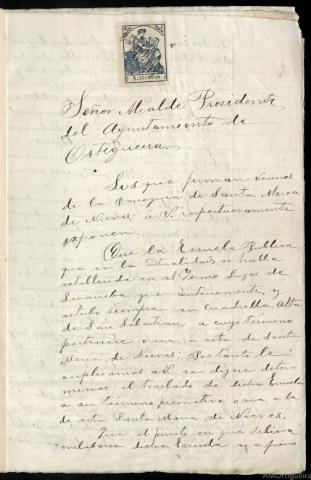 Señor Alcalde Presidente
del Ayuntamiento de
Ortigueira.
Los que firman vecinos
de la Parroquia de Santa Maria
de Nieves; a V. respetuosamente
exponen:
Que la Escuela Publica
que en la actualidad se halla
establecida en el Yermo lugar de
que anteriormente, y
estubo siempre en Cuadrilla Alta
de San Sebastian a cuyo termino
pertenece ó sea a esta de Santa
Maria de Nieves: Por tanto le
suplicamos a V. se digne deter-
minar el traslado de dicha Escuela
a su termino primitivo osea a la
de esta Santa Maria de Nieves.
Que el punto en que debiera
dicha Escuela es a
AMOrtigueira